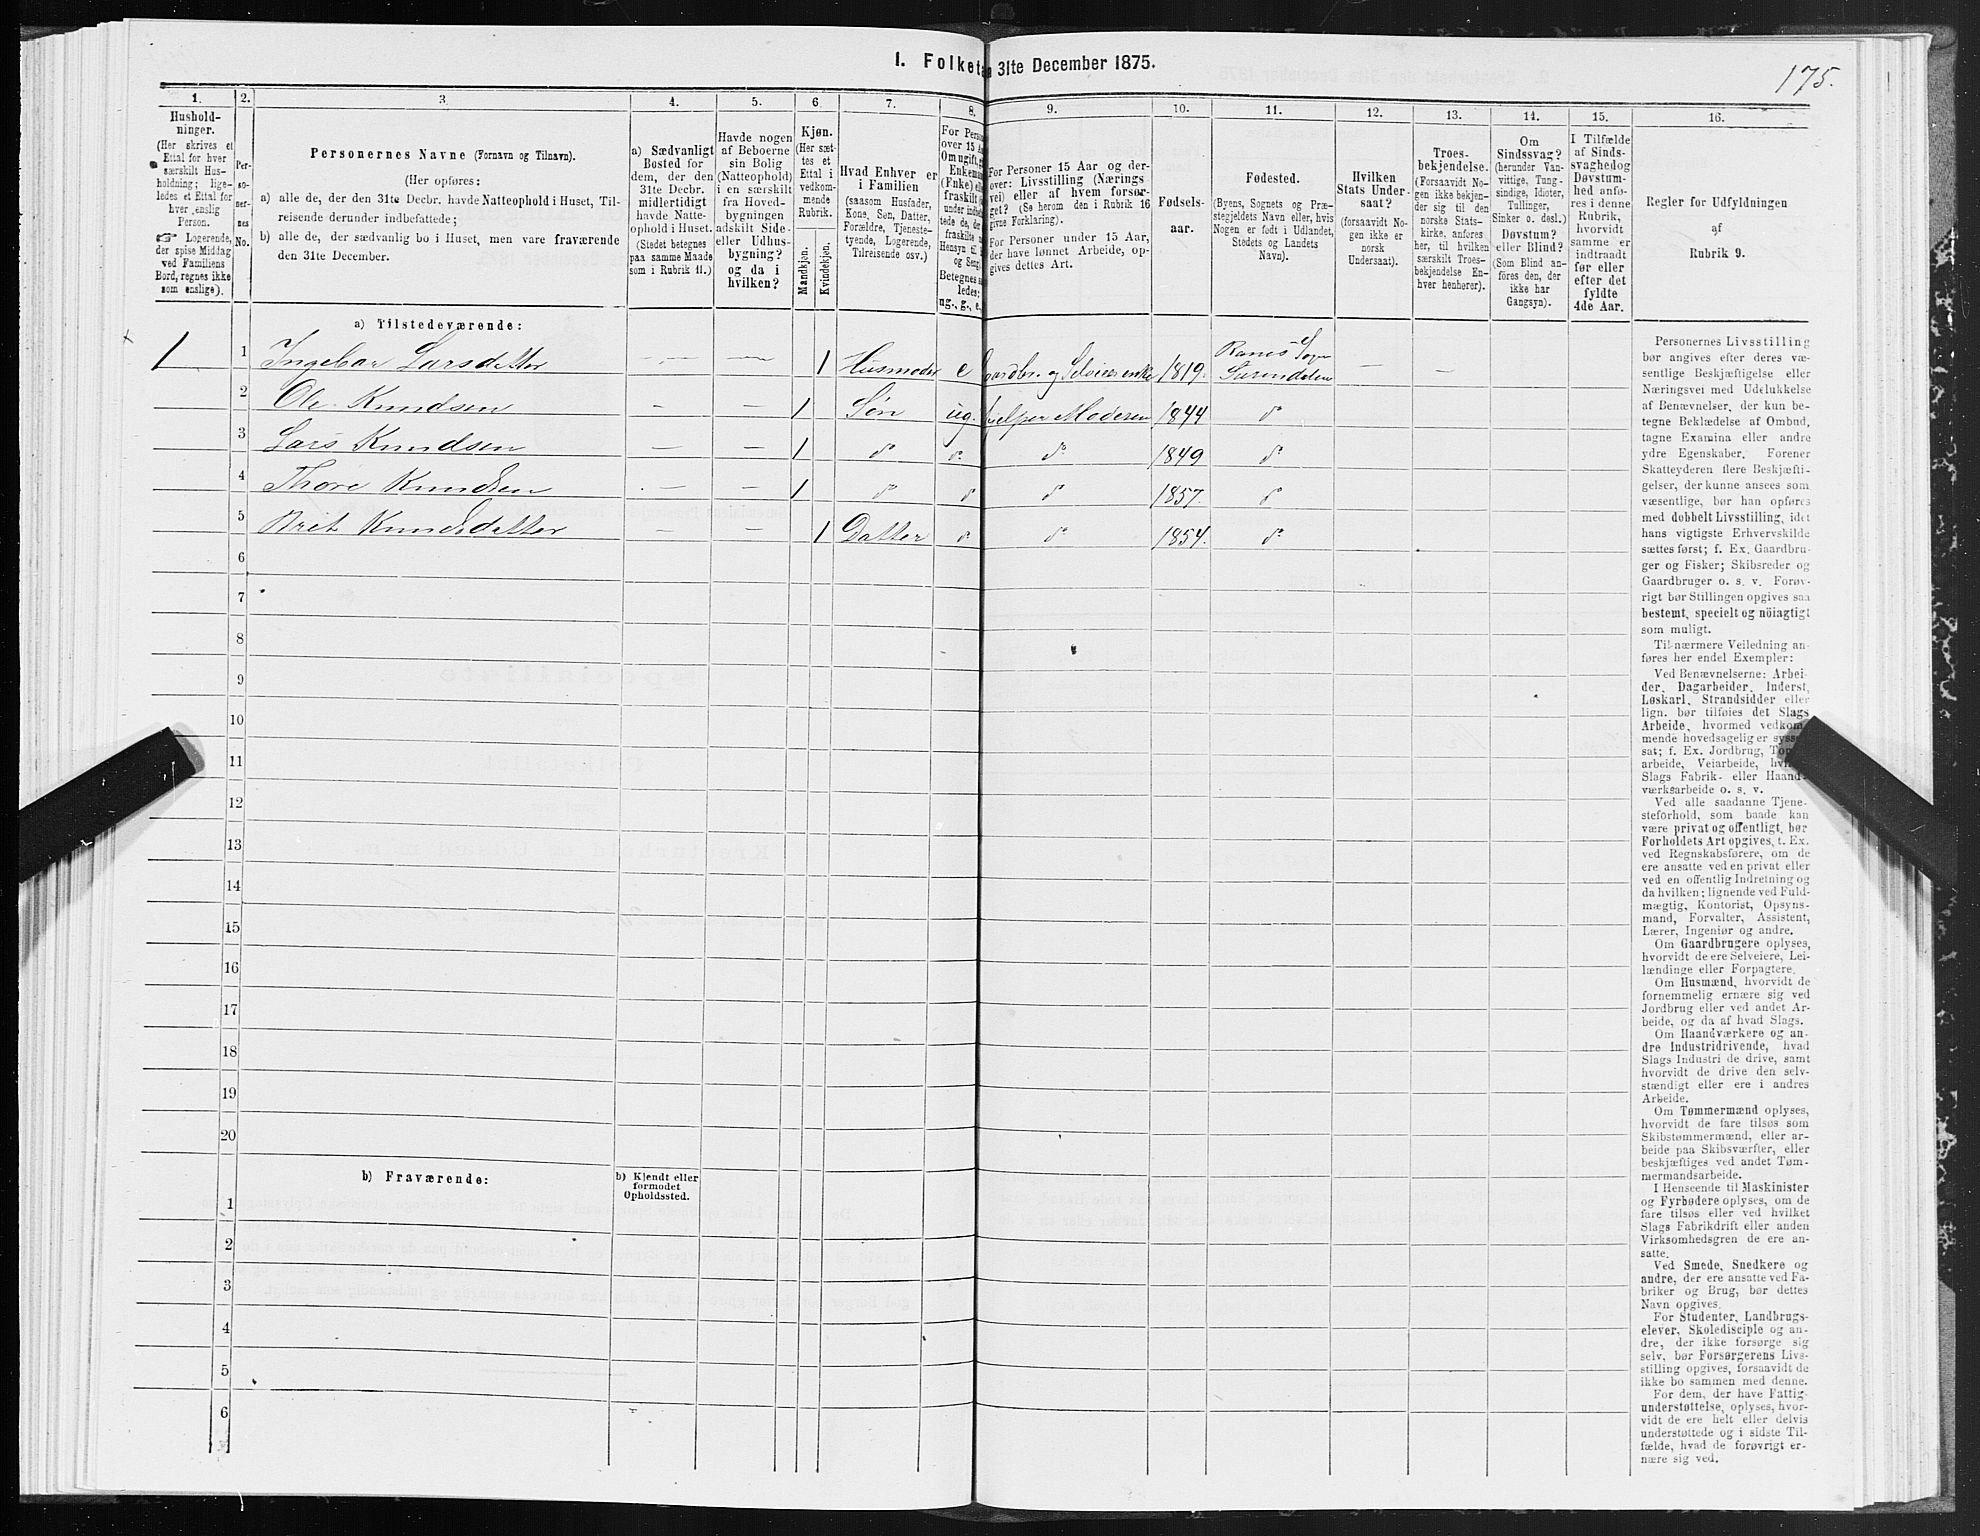 I. Folketæ
n 31te December 1875.
175.
1.
Hushold-
ninger.
(Her skrives et
Ettal for hver
særskilt Hus-
holdning; lige-
ledes et Ettal for
hver enslig
Person.
Logerende,
der spise Middag
ved Familiens
Bord, regnes ikke
som enslige).
2.
Per-
so-
ner-
nes
No.
3.
Personernes Navne (Fornavn og Tilnavn).
(Her opføres:
a) alle de, der den 31te Decbr. havde Natteophold i Huset, Til-
reisende derunder indbefattede;
b) alle de, der sædvanlig bo i Huset, men vare fraværende
den 31te December.
4.
a) Sædvanligt
Bosted for
dem, der den
31te Decbr.
midlertidigt
havde Natte-
ophold i Huset.
(Stedet betegnes
paa samme Maade
som i Rubrik 11.)
5.
Havde nogen
af Beboerne
sin Bolig
(Natteophold)
i en særskilt
fra Hoved-
bygningen
adskilt Side-
eller Udhus-
bygning?
og da i
hvilken?
6
Kjøn.
(Her sæt-
tes et
Ettal i
vedkom-
mende
Rubrik.
Mandkjøn.
Kvindekjøn.
7.
Hvad Enhver er
i Familien
(saasom Husfader,
Kone, Søn, Datter,
Forældre, Tjeneste-
tyende, Logerende,
Tilreisende osv.)
8.
For Perso
over 15 Aa
Om ugift, g
Enkeman
(Enke) el
fraskilt
under indbe
tede de, der
fraskilte
Hensyn til
og Seng)
Betegnes s
ledes:
ug., g., e.,
9.
For Personer 15 Aar og der-
over: Livsstilling (Nærings
vei) eller af hvem forsør-
get? (Se herom den i Rubrik 16
givne Forklaring).
For Personer under 15 Aar,
der have lønnet Arbeide, op-
gives dettes Art.
10.
Fødsels-
aar.
11.
Fødested.
(Byens, Sognets og Præ-
stegjeldets Navn eller, hvis
Nogen er født i Udlandet,
Stedets og Landets
Navn).
12.
Hvilken
Stats Under-
saat?
(forsaavidt No-
gen ikke er
norsk
Undersaat).
13.
Troes-
bekjendelse.
(Forsaavidt No-
gen ikke bekjen-
der sig til den
norske Stats-
kirke, anføres
her, til hvilken
særskilt Troes-
bekjendelse En-
hver henhører).
14.
Om
Sindssvag?
(herunder Van-
vittige, Tung-
sindige, Idioter,
Tullinger,
Sinker o. desl.)
Døvstum?
eller Blind?
(Som Blind an-
føres den, der
ikke har
Gangsyn).
15.
I Tilfælde
af Sinds-
svaghed og
Døvstum-
hed anfø-
res i denne
Rubrik,
hvorvidt
samme er
indtraadt
før eller
efter det
fyldte
4de Aar.
16.
Regler for Udfyldningen
af
Rubrik 9.
a) Tilstedeværende:
1 1 Ingebor Larsdatter — — 1 Husmoder e Gaardbr. og Selveierenke 1819. Ranes Sogn Surendalen — —
2 Ole Knudsen — — 1 Søn ug. hjelper Moderen 1844 do
3 Lars Knudsen — — 1 do do do 1849 do
4 Thore Knudsen — — 1 do do do 1857. do
5 Brit Knudsdatter — — 1 Datter do do 1854. do
6
7
8
9
10
11
12
13
14
15
16
17
18
19
20
b) Fraværende:
b) Kjendt eller
formodet
Opholdssted.
1
2
3
4
5
6
Personernes Livsstilling
bør angives efter deres væ-
sentlige Beskjæftigelse eller
Næringsvei med Udelukkelse
af Benævnelser, der kun be-
tegne Beklædelse af Ombud,
tagne Examina eller andre
ydre Egenskaber. Forener
Skatteyderen flere Beskjæfti-
gelser, der kunne ansees som
væsentlige, bør han opføres
med dobbelt Livsstilling, idet
hans vigtigste Erhvervskilde
sættes først; f. Ex. Gaardbru-
ger og Fisker; Skibsreder og
Gaardbruger o. s. v. Forøv-
rigt bør Stillingen opgives saa
bestemt, specielt og nöiagtigt
som muligt.
Til nærmere Veiledning an-
føres her endel Exempler:
Ved Benævnelserne: Arbei-
der, Dagarbeider, Inderst,
Løskarl, Strandsidder eller
lign. bør tilføies det Slags
Arbeide, hvormed vedkom-
mende hovedsagelig er syssel-
sat; f. Ex. Jordbrug, Tom
arbeide, Veiarbeide, hvil
Slags Fabrik- eller Haand-
værksarbeide o. s. v.
Ved alle saadanne Tjene-
steforhold, som baade kan
være privat og offentligt, bør
Forholdets Art opgives, t. Ex.
ved Regnskabsførere, om de
ere ansatte ved en privat eller
ved en offentlig Indretning og
da hvilken; lignende ved Fuld-
mægtig, Kontorist, Opsyns-
mand, Forvalter, Assistent,
Lærer, Ingeniør og andre.
Om Gaardbrugere oplyses,
hvorvidt de ere Selveiere, Lei-
lændinge eller Forpagtere.
Om Husmænd, hvorvidt de
fornemmelig ernære sig ved
Jordbrug eller ved andet Ar-
beide, og da af hvad Slags.
Om Haandværkere og an-
dre Industridrivende, hvad
Slags Industri de drive, samt
hvorvidt de drive den selv-
stændigt eller ere i andres
Arbeide.
Om Tømmermænd oplyses,
hvorvidt de fare tilsøs som
Skibstømmermænd, eller ar-
beide paa Skibsværfter, eller
beskjæftiges ved andet Tøm-
mermandsarbeide.
I Henseende til Maskinister
og Fyrbødere oplyses, om de
fare tilsøs eller ved hvilket
Slags Fabrikdrift eller anden
Virksomhedsgren de ere an-
satte.
Ved Smede, Snedkere og
andre, der ere ansatte ved Fa-
briker og Brug, bør dettes
Navn opgives.
For Studenter, Landbrugs-
elever, Skoledisciple og an-
dre, der ikke forsørge sig
selv, bør Forsørgerens Livs-
stilling opgives, forsaavidt de
ikke bo sammen med denne.
For dem, der have Fattig-
understøttelse, oplyses, hvor-
vidt de ere helt eller delvis
understøttede og i sidste Til-
fælde, hvad de forøvrigt er-
nære sig ved.